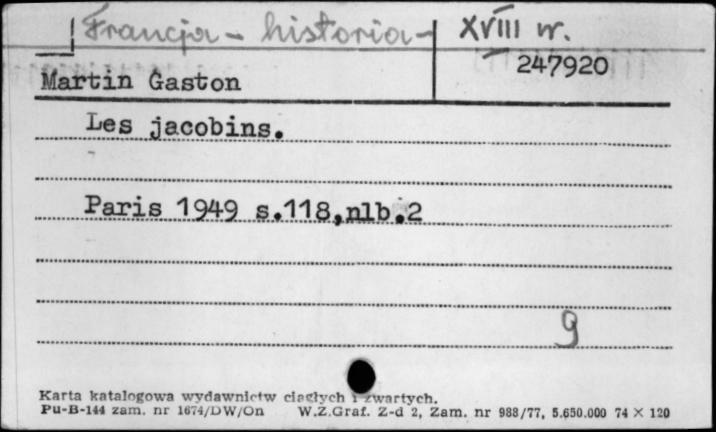 Francja - historia - XVIII w.
247920
Martin Gaston
Les jacobins.
Paris 1949 s.118,nlb.2
g
Karta katalogowa wydawnictw ciągłych i zwartych.
Pu-B-144 zam. nr 1674/DW/On W.Z.Graf. Z-d 2, Zam. nr 988/77, 5.650.000 74 × 120